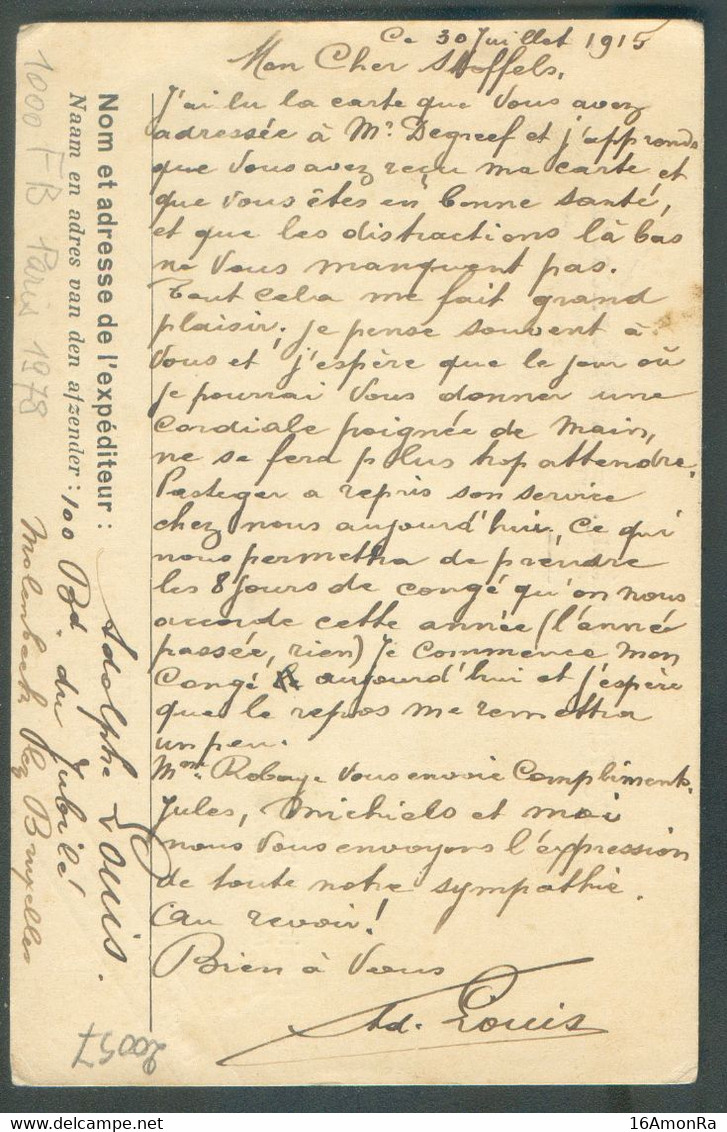 Ce 30 Juillet 1915
Mon Cher Stoffels,
J'ai lu la carte que vous avez
adressée à Mr. Degreef et j'apprends
que vous avez reçu ma carte et
que vous êtes en bonne santé,
et que les distractions là bas
ne vous manquent pas.
Tout cela me fait grand
plaisir; je pense souvent à
vous et j'espère que le jour où
je pourrai vous donner une
cordiale poignée de main,
ne se fera plus trop attendre.
Pasteger a repris son service
chez nous aujourd'hui. Ce qui
nous permettra de prendre
les 8 jours de congé qu'on nous
accorde cette année (l'année
passée, rien) Je commence mon
congé aujourd'hui et j'espère
que le repos me remettra
un peu.
Mme Robaye vous envoie compliments.
Jules, Michiels et moi
nous vous envoyons l'expression
de toute notre sympathie.
Au revoir!
Bien à vous
Ad. Louis
Nom et adresse de l'expéditeur :
Naam en adres van den afzender :
Adolphe Louis.
100 Bd. du Jubilé
Molenbeek lez Bruxelles
1000 FB Paris 1978
20057
16AmonRa